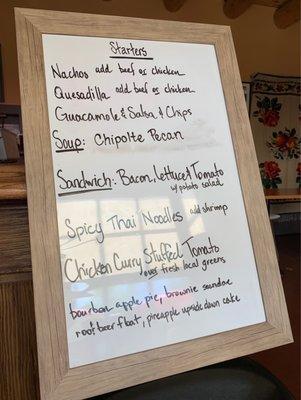 Starters
Nachos add beef or chicken
Quesadilla add beef or chicken
Guacamole & Salsa & Chips
Soup: Chipolte Pecan
Sandwich: Bacon, Lettuce & Tomato
w/ potato salad
Spicy Thai Noodles add shrimp
Chicken Curry Stuffed Tomato
over fresh local greens
bourbon apple pie, brownie sundae
root beer float, pineapple upside down cake